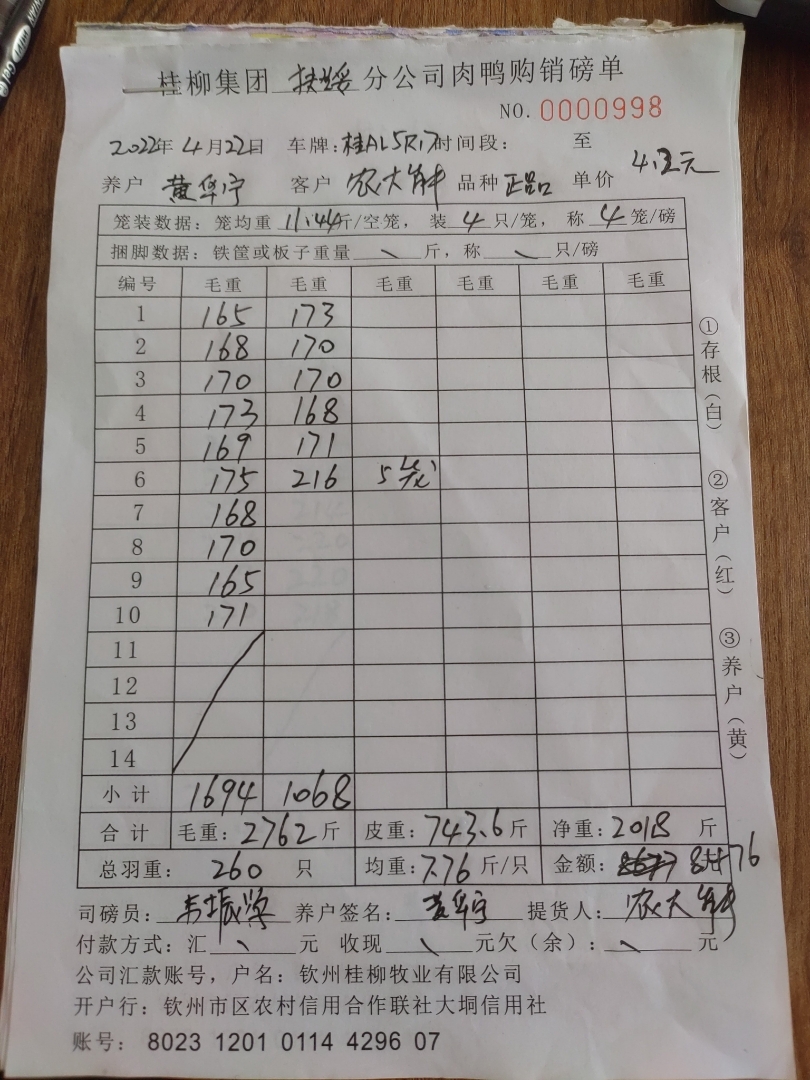 桂柳集团 扶绥 分公司肉鸭购销磅单
NO. 0000998
2022年 4月22日 车牌:桂AL5R17 时间段: 至
养户 黄华宁 客户 农大 品种 正品 单价 4.3元
笼装数据:笼均重 11.44斤/空笼, 装 4 只/笼, 称 4 笼/磅
捆脚数据:铁筐或板子重量 斤,称 只/磅
编号 毛重 毛重 毛重 毛重 毛重 毛重
1 165 173
2 168 170
3 170 170
4 173 168
5 169 171
6 175 216 5笼
7 168
8 170
9 165
10 171
11
12
13
14
小计 1694 1068
合计 毛重:2762斤 皮重:743.6斤 净重:2018 斤
总羽重: 260 只 均重:7.76 斤/只 金额:
司磅员: 养户签名:黄华宁 提货人:农大
付款方式:汇 元 收现 元欠(余): 元
公司汇款账号,户名:钦州桂柳牧业有限公司
开户行:钦州市区农村信用合作联社大垌信用社
账号: 8023 1201 0114 4296 07
①存根(白)
②客户(红)
③养户(黄)